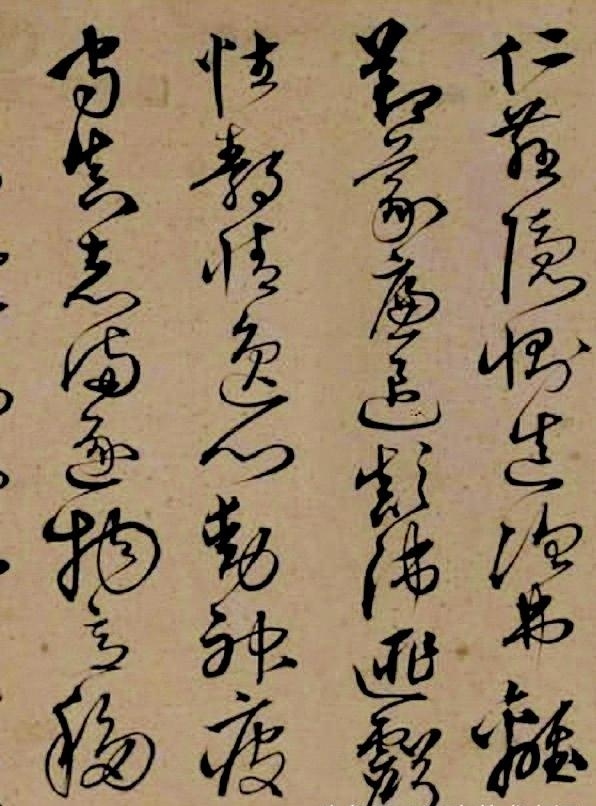 仁慈隱惻造次弗離
節義廉退顛沛匪虧
性靜情逸心動神疲
守真志滿逐物意移